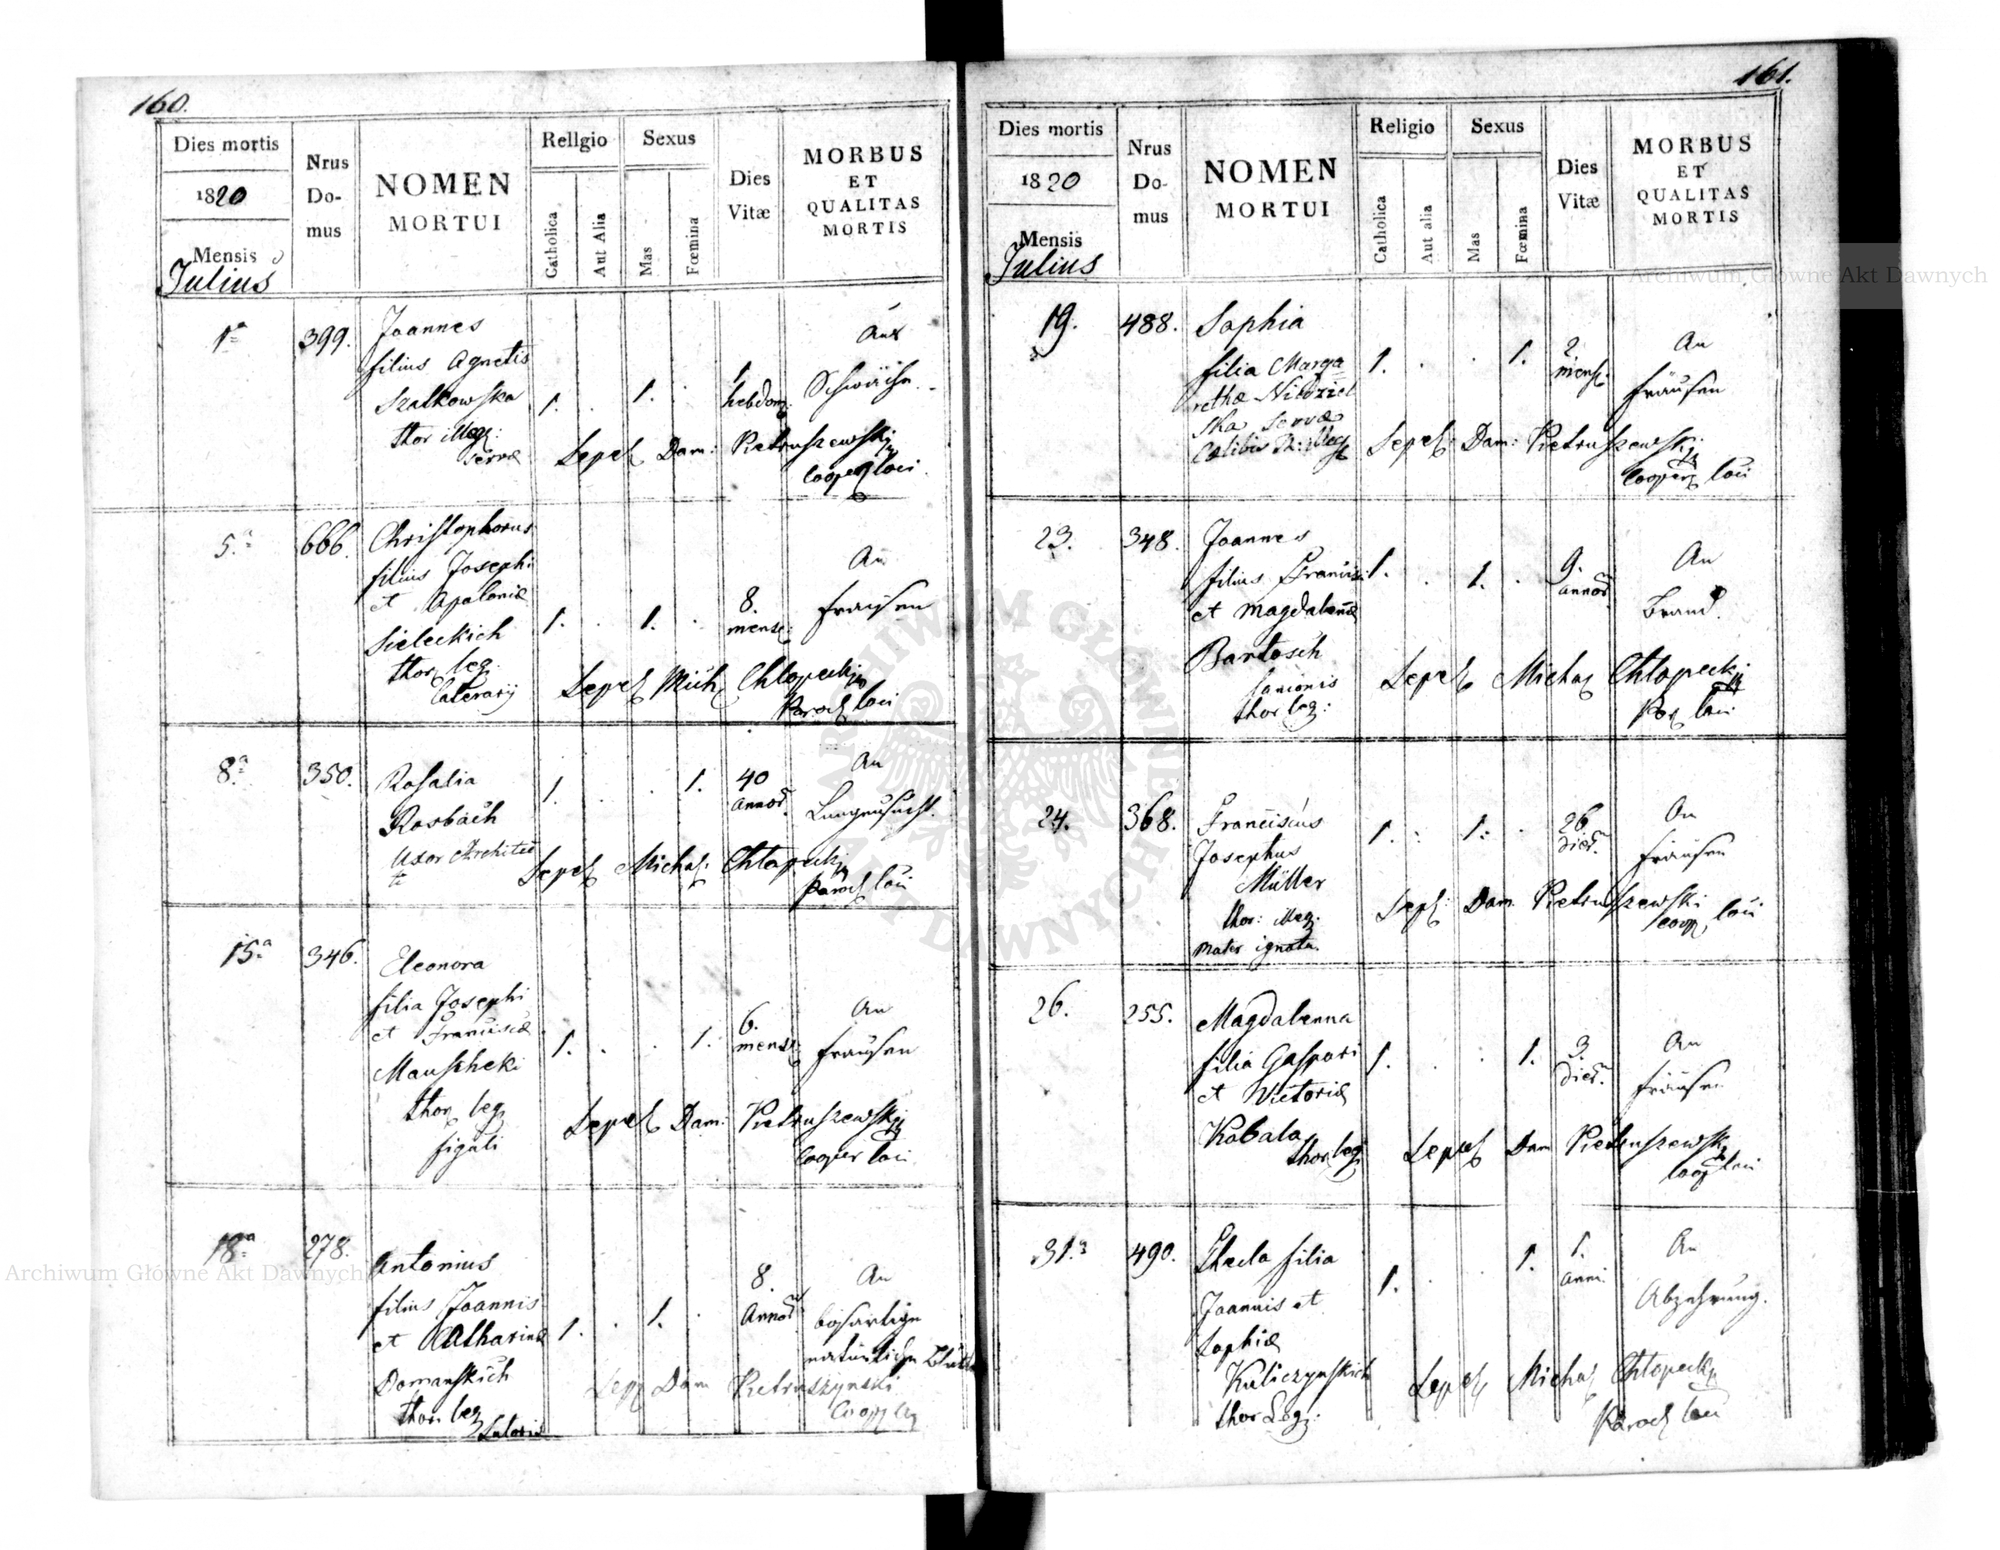 160.
Dies mortis
1820
Mensis
Julius
Nrus
Do-
mus
NOMEN
MORTUI
Religio
Catholica
Aut Alia
Sexus
Mas
Fœmina
Dies
Vitæ
MORBUS
ET
QUALITAS
MORTIS
1ª 399. Joannes
filius Agnetis
Szalkowska
thor illeg:
servæ
1. . 1. .
1
hebdom:
Aus
Schwäche.
Sepel Dam: Pietruszewski
Cooper loci.
5ª 666. Christophorus
filius Josephi
et Apoloniæ
Sieleckich
thor leg.
1. . 1. .
8.
mens:
An
Fraisen
Sepel Mich Chłopecki
Paroch loci
8ª 350. Rosalia
Rosbach
Uxor Architec
ti
1. . . 1.
40
annor.
An
Lungensucht.
Sepel Michal: Chłopecki
Paroch loci
15ª 346. Eleonora
filia Josephi
et Franciscæ
Mauscheki
thor leg
figuli
1. . . 1.
6.
mens:
An
Fraisen
Sepel Dam: Pietruszewski
Cooper loci
18ª 278. Antonius
filius Joannis
et Catharinæ
Domanskich
thor. leg
Sutoris
1. . 1. .
8.
Annor
An
bösartige
natürliche
Sep Dam Pietruszynski
Coop
161.
Dies mortis
1820
Mensis
Julius
Nrus
Do-
mus
NOMEN
MORTUI
Religio
Catholica
Aut alia
Sexus
Mas
Fœmina
Dies
Vitæ
MORBUS
ET
QUALITAS
MORTIS
19. 488. Sophia
filia Marga
rethæ Niedziel
ska servæ
1. . . 1.
2
mens:
An
Fraisen
Sepel: Dam: Pietruszewski
Cooper loci
23. 348. Joannes
filius Francisci
et Magdalenæ
Bartosch
lanionis
thor leg:
1. . 1. .
9.
annor
An
Brand.
Sepel Micha Chłopecki
Par loci
24. 368. Franciscus
Josephus
Müller
thor: illeg.
Mater ignota.
1. . 1. .
26
dier.
An
Fraisen
Sepel: Dam Pietruszewski
coop loci
26. 255. Magdalenna
filia Gaspari
et Victoriæ
Kobala
thor leg
1. . . 1.
3
dier.
An
Fraisen
Sepel Dam Pietruszewski
Coop loci
31ª 490. Thecla filia
Joannis et
Sophiæ
Kuliczynskich
thor Leg:
1. . . 1.
1.
anni.
An
Abzehrung.
Sepel Micha Chłopecki
Paroch loci
Archiwum Główne Akt Dawnych
Archiwum Główne Akt Dawnych
ARCHIWUM GŁÓWNE
AKT DAWNYCH